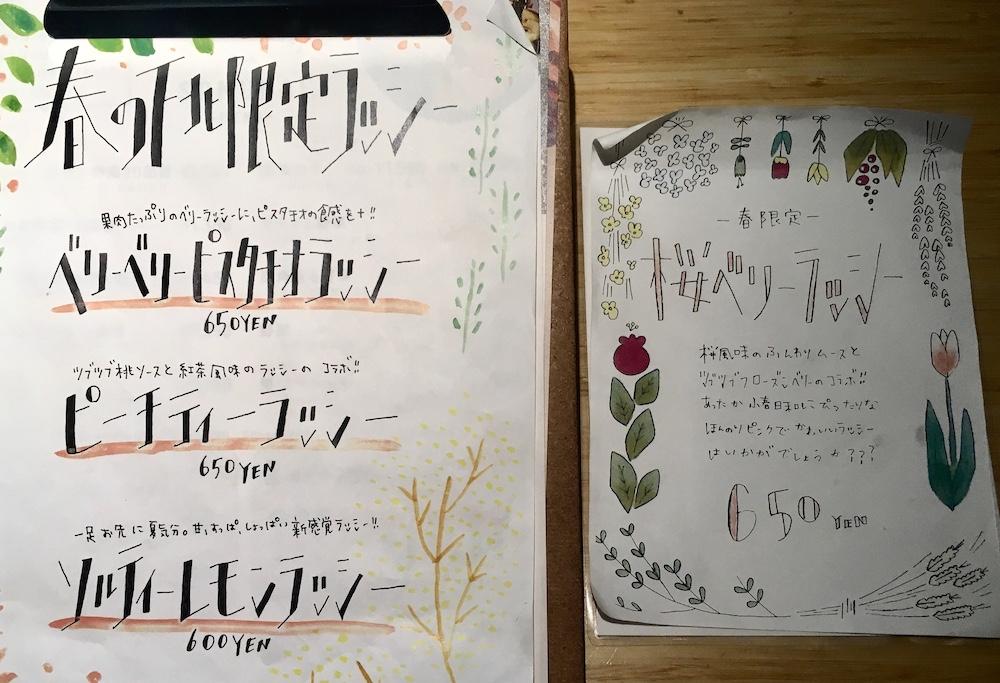 春の期間限定ラッシー
果肉たっぷりのベリーラッシーに、ピスタチオの食感を+!!
ベリーベリーピスタチオラッシー
650YEN
ツブツブ桃ソースと紅茶風味のラッシーの コラボ!!
ピーチティーラッシー
650YEN
一足お先に夏気分。甘じょっぱ、しょっぱい新感覚ラッシー!!
ソルティーレモンラッシー
600YEN
ー春限定ー
桜ベリーラッシー
桜風味のふんわりムースと
ツブツブフローズンベリーのコラボ!!
あったか小春日和にぴったりな
ほんのりピンクでかわいいラッシー
はいかがでしょうか???
650 YEN